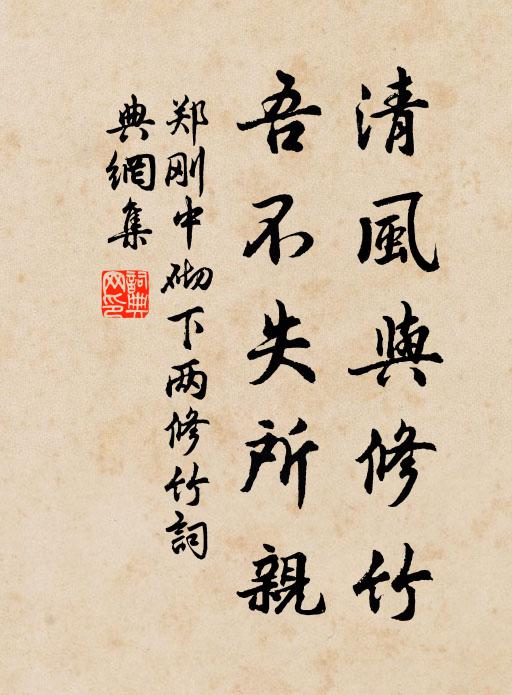 清風與修竹
吾不失所親
郑刚中砌下两修竹詞
典網集
詞典网印